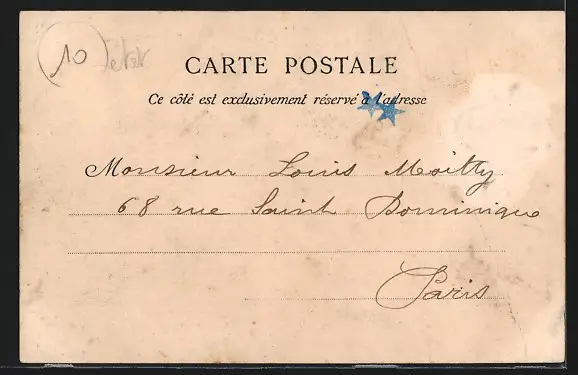 10
CARTE POSTALE
Ce côté est exclusivement réservé à l'adresse
Monsieur Louis Moitty
68 rue Saint Dominique
Paris